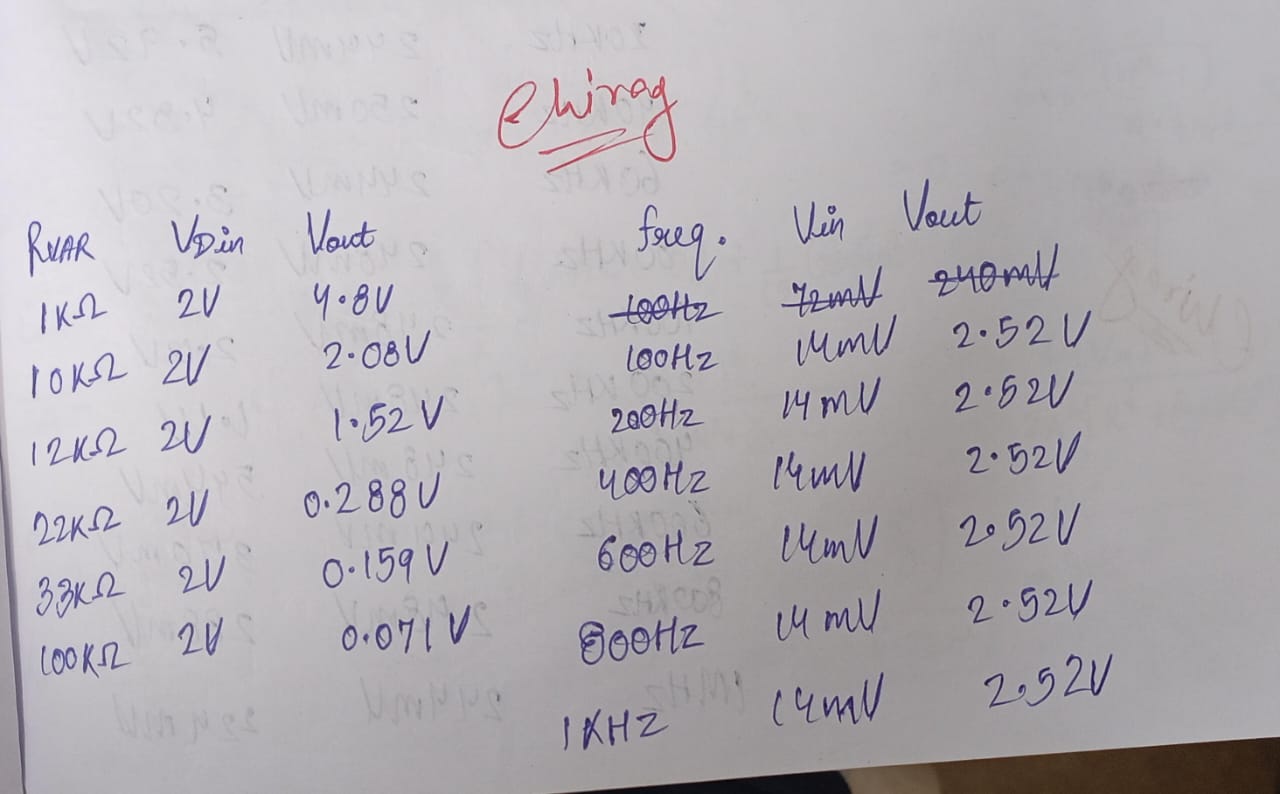 Chirag
RVAR VDin Vout
1KΩ 2V 4.8V
10KΩ 2V 2.08V
12KΩ 2V 1.52V
22KΩ 2V 0.288V
33KΩ 2V 0.159V
100KΩ 2V 0.071V
freq. Vin Vout
100Hz 72mV 240mV
100Hz 14mV 2.52V
200Hz 14mV 2.52V
400Hz 14mV 2.52V
600Hz 14mV 2.52V
800Hz 14mV 2.52V
1KHz 14mV 2.52V